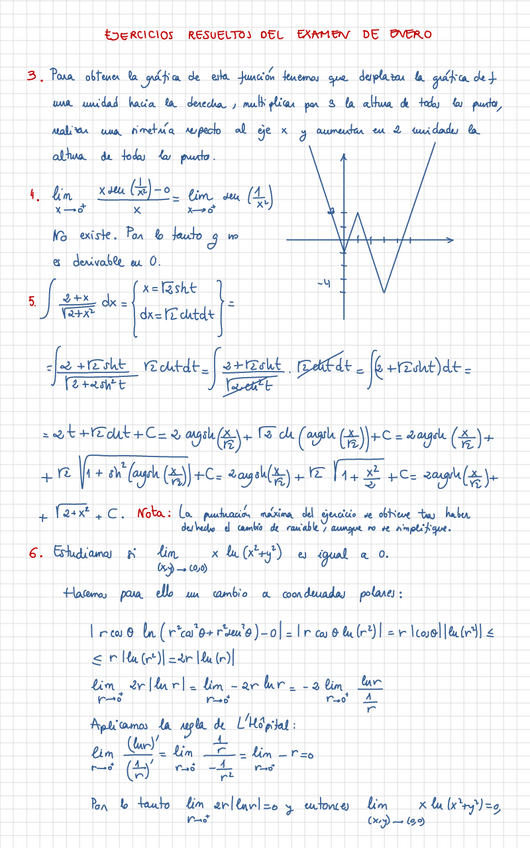 EJERCICIOS RESUELTOS DEL EXAMEN DE ENERO
3. Para obtener la gráfica de esta función tenemos que desplazar la gráfica de f
una unidad hacia la derecha, multiplicar por 3 la altura de todos los puntos,
realizar una simetría respecto al eje x y aumentar en 2 unidades la
altura de todos los puntos.
4. lim x→0⁺ (x sen(1/x²) - 0)/x = lim x→0⁺ sen(1/x²)
No existe. Por lo tanto g no
es derivable en 0.
2
-4
5. ∫ (2+x)/√(2+x²) dx = { x = √2 sht
dx = √2 cht dt } =
= ∫ (2+√2 sht)/√(2+2sh²t) √2 cht dt = ∫ (2+√2 sht)/√(2ch²t) · √2 cht dt = ∫(2+√2 sht) dt =
= 2t + √2 cht + C = 2 argsh(x/√2) + √2 ch(argsh(x/√2)) + C = 2 argsh(x/√2) +
+ √2 √(1 + sh²(argsh(x/√2))) + C = 2 argsh(x/√2) + √2 √(1 + x²/2) + C = 2 argsh(x/√2) +
+ √(2+x²) + C. Nota: La puntuación máxima del ejercicio se obtiene tras haber
deshecho el cambio de variable, aunque no se simplifique.
6. Estudiamos si lim (x,y)→(0,0) x ln(x²+y²) es igual a 0.
Hacemos para ello un cambio a coordenadas polares:
|r cos θ ln(r²cos²θ + r²sen²θ) - 0| = |r cos θ ln(r²)| = r |cosθ| |ln(r²)| ≤
≤ r |ln(r²)| = 2r |ln(r)|
lim r→0⁺ 2r |ln r| = lim r→0⁺ -2r ln r = -2 lim r→0⁺ ln r/(1/r)
Aplicamos la regla de L'Hôpital:
lim r→0⁺ (ln r)'/(1/r)' = lim r→0⁺ (1/r)/(-1/r²) = lim r→0⁺ -r = 0
Por lo tanto lim r→0⁺ 2r |ln r| = 0 y entonces lim (x,y)→(0,0) x ln(x²+y²) = 0,